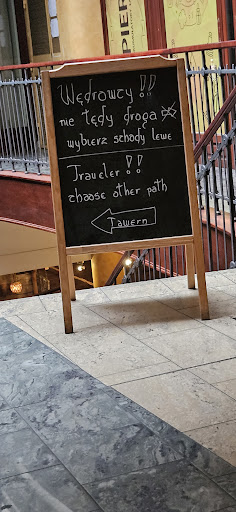 PIER
Wędrowcy !!
nie tędy droga
wybierz schody lewe
Traveler !!
choose other path
Tawern